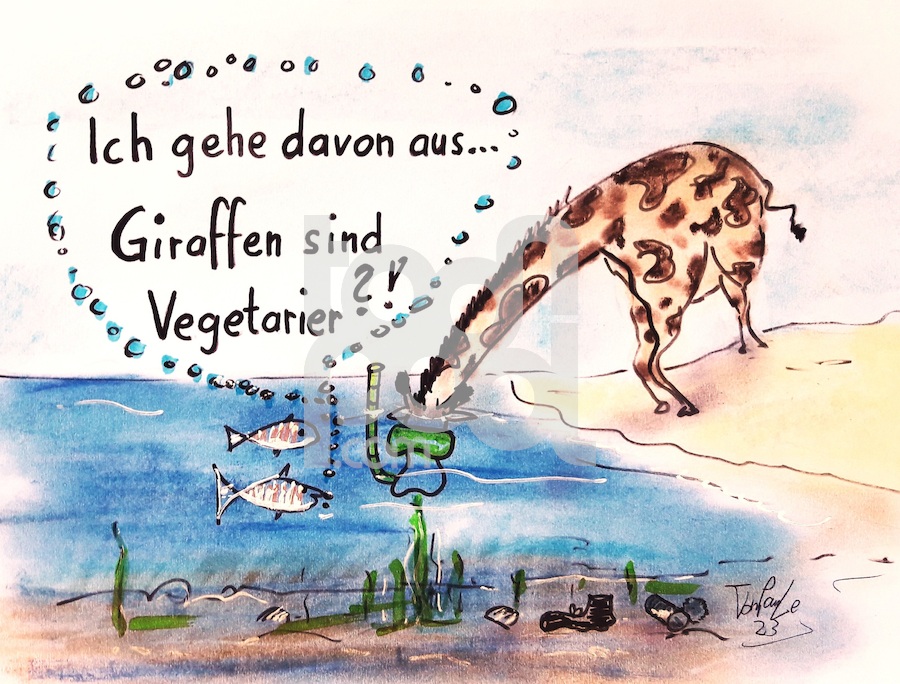 Ich gehe davon aus...
Giraffen sind
Vegetarier?!
toonpool
.com
23